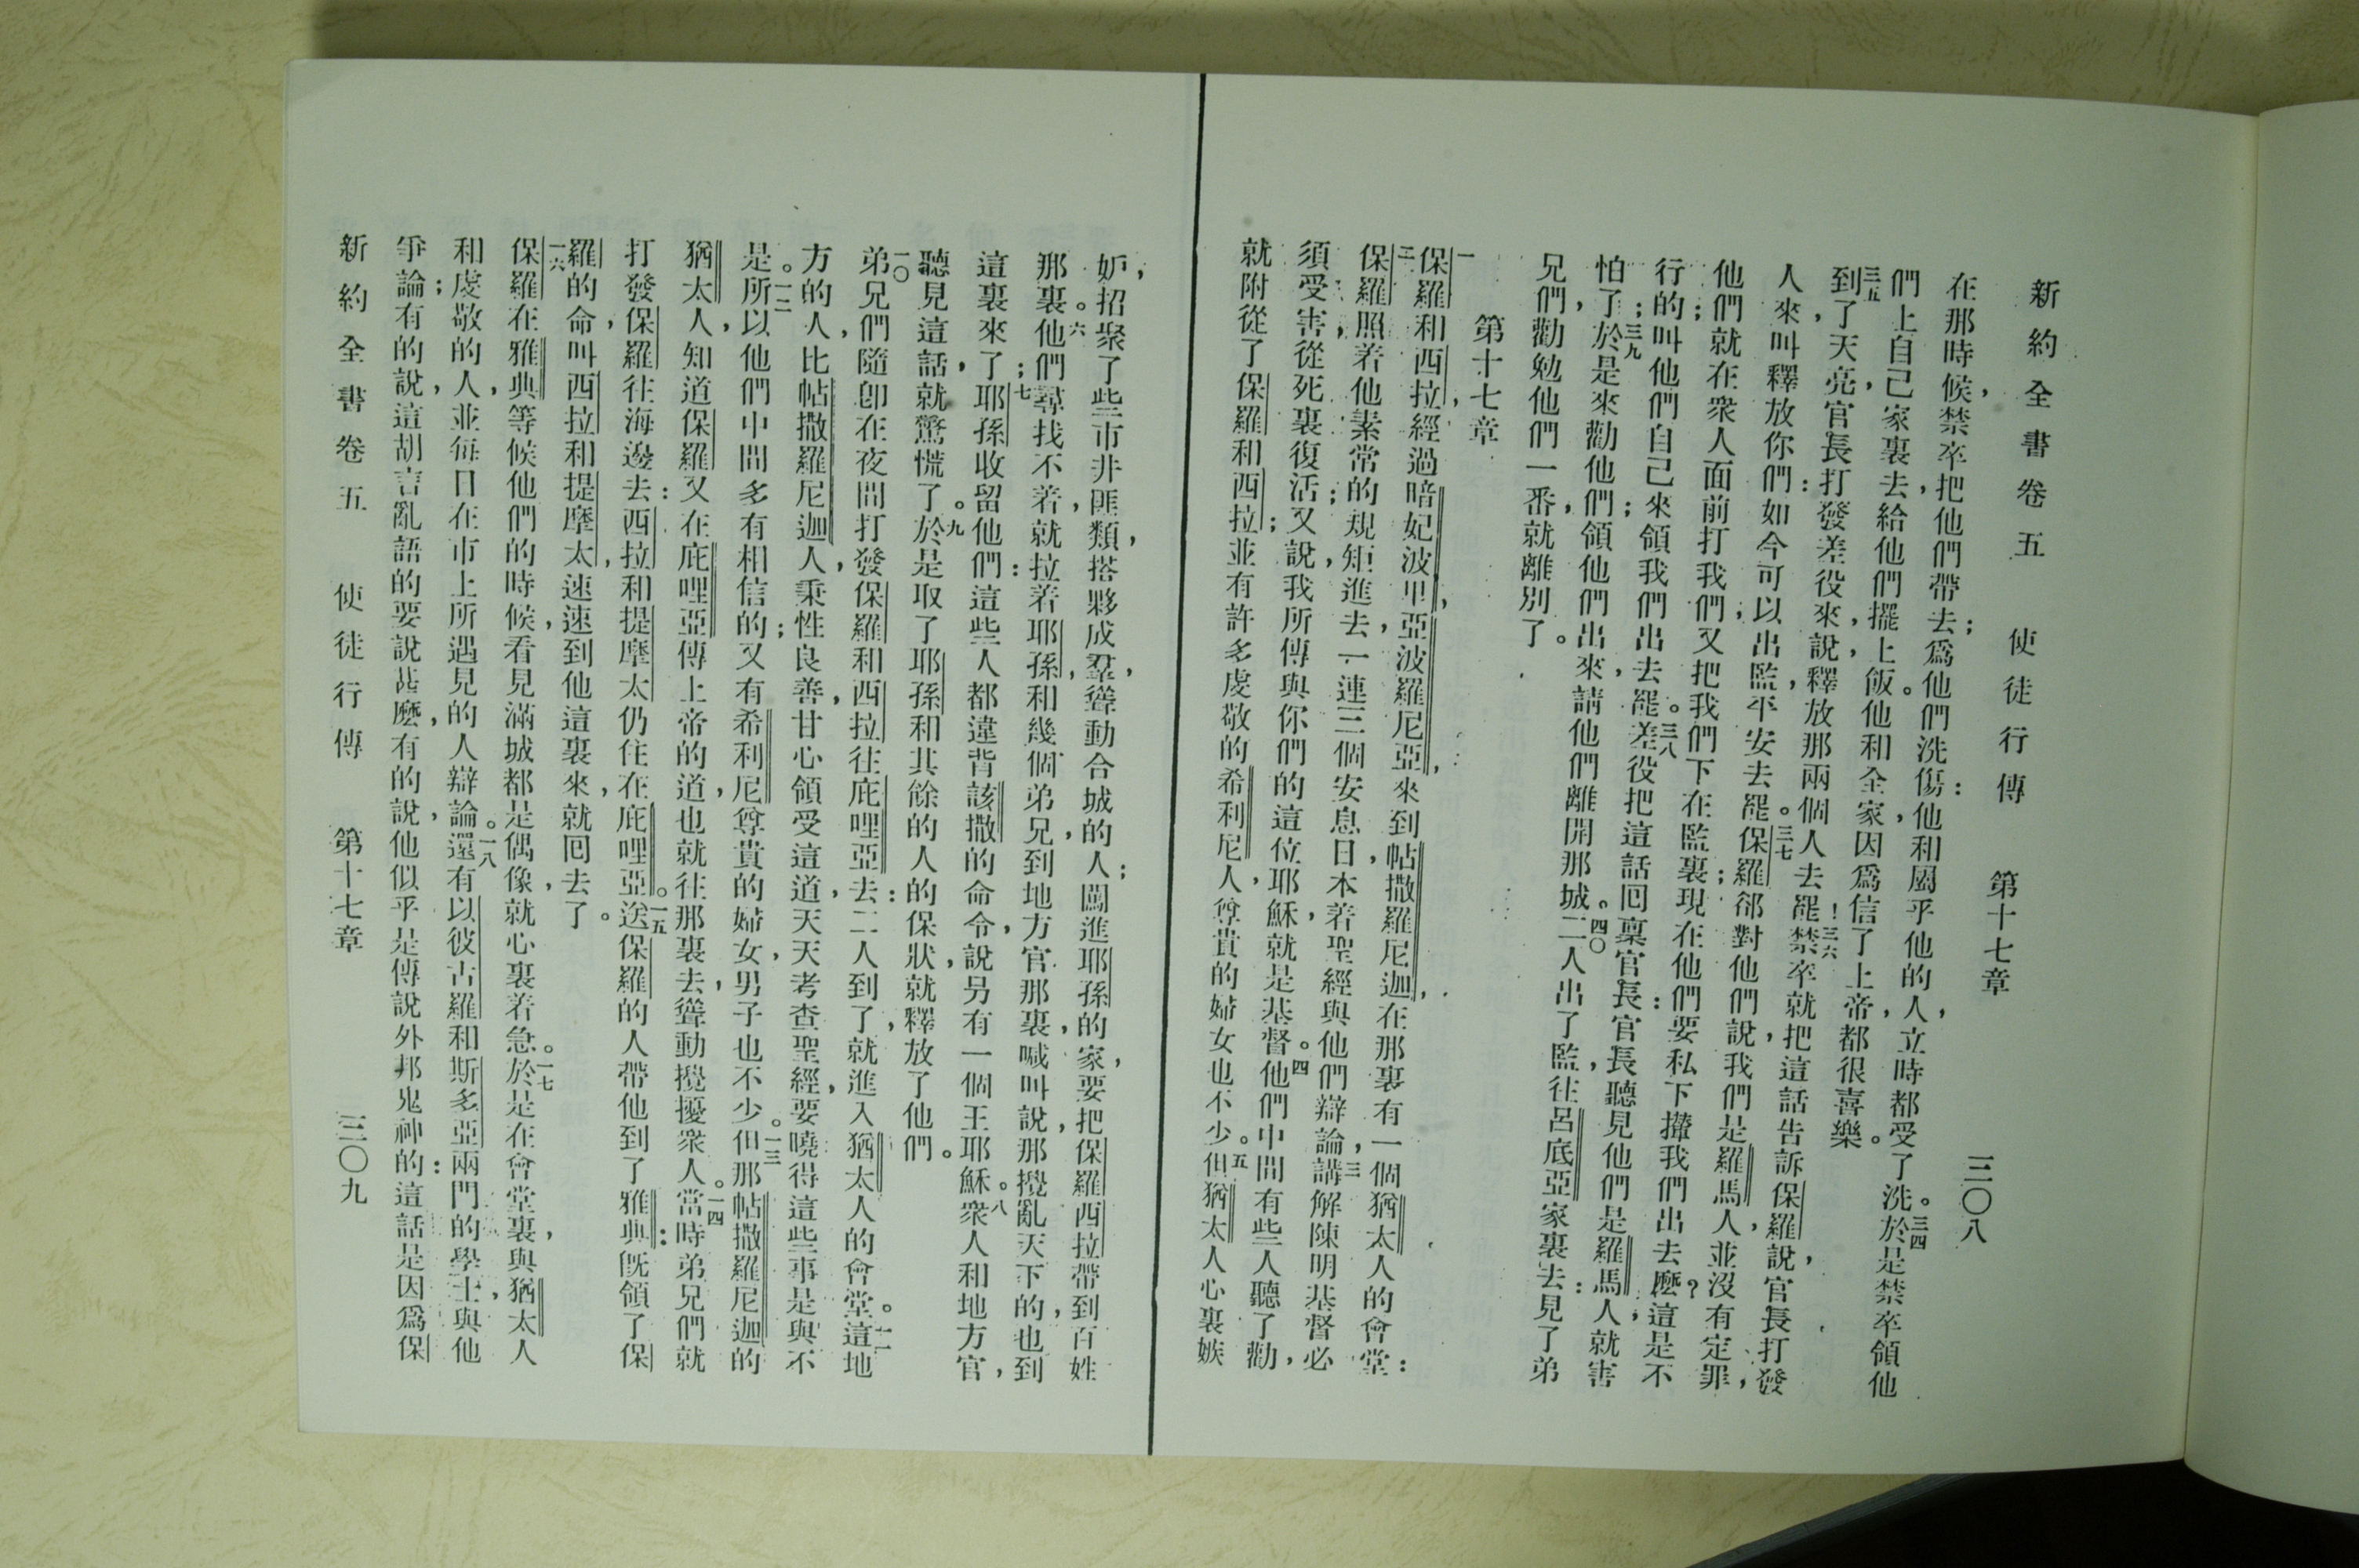 新約全書卷五 使徒行傳 第十七章 三〇八
在那時候，禁卒把他們帶去；爲他們洗傷：他和屬乎他的人，立時都受了洗。三四於是禁卒領他
們上自己家裏去，給他們擺上飯。他和全家，因爲信了上帝，都很喜樂。
三五到了天亮，官長打發差役來，說，釋放那兩個人去罷！三六禁卒就把這話告訴保羅說，官長打發
人來，叫釋放你們：如今可以出監，平安去罷。三七保羅卻對他們說，我們是羅馬人，並沒有定罪，
他們就在衆人面前打我們，又把我們下在監裏；現在他們要私下攆我們出去麼？這是不
行的；叫他們自己來領我們出去罷。三八差役把這話回稟官長：官長聽見他們是羅馬人，就害
怕了；三九於是來勸他們；領他們出來，請他們離開那城。四〇二人出了監，往呂底亞家裏去：見了弟
兄們，勸勉他們一番，就離別了。
第十七章
一保羅和西拉，經過暗妃波里，亞波羅尼亞，來到帖撒羅尼迦，在那裏有一個猶太人的會堂：
二保羅照着他素常的規矩進去，一連三個安息日，本着聖經與他們辯論，三講解陳明基督必
須受害，從死裏復活；又說，我所傳與你們的這位耶穌，就是基督。四他們中間有些人聽了勸，
就附從了保羅和西拉；並有許多虔敬的希利尼人，尊貴的婦女也不少。五但猶太人心裏嫉
妒，招聚了些市井匪類，搭夥成羣，聳動合城的人；闖進耶孫的家，要把保羅西拉帶到百姓
那裏。六他們尋找不着，就拉着耶孫，和幾個弟兄，到地方官那裏，喊叫說，那攪亂天下的，也到
這裏來了；七耶孫收留他們：這些人都違背該撒的命令，說另有一個王耶穌。八衆人和地方官，
聽見這話，就驚慌了。九於是取了耶孫和其餘的人的保狀，就釋放了他們。
一〇弟兄們，隨卽在夜間打發保羅和西拉往庇哩亞去：二人到了，就進入猶太人的會堂。一一這地
方的人，比帖撒羅尼迦人，秉性良善；甘心領受這道，天天考查聖經，要曉得這些事是與不
是。一二所以他們中間多有相信的；又有希利尼尊貴的婦女，男子也不少。一三但那帖撒羅尼迦的
猶太人，知道保羅又在庇哩亞傳上帝的道，也就往那裏去，聳動攪擾衆人。一四當時弟兄們就
打發保羅往海邊去：西拉和提摩太仍住在庇哩亞。一五送保羅的人帶他到了雅典：旣領了保
羅的命，叫西拉和提摩太，速速到他這裏來，就回去了。
一六保羅在雅典等候他們的時候，看見滿城都是偶像，就心裏着急。一七於是在會堂裏，與猶太人
和虔敬的人，並每日在市上所遇見的人辯論。一八還有以彼古羅和斯多亞兩門的學士，與他
爭論；有的說，這胡言亂語的要說甚麼，有的說，他似乎是傳說外邦鬼神的：這話是因爲保
新約全書卷五 使徒行傳 第十七章 三〇九